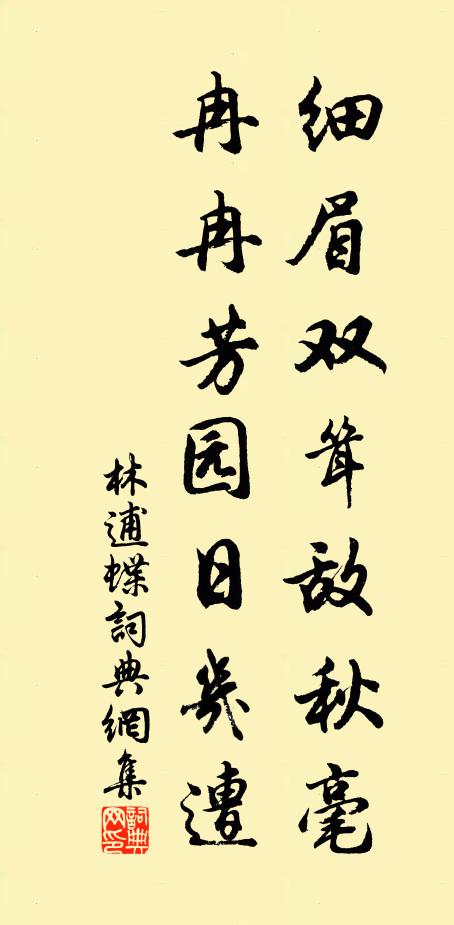 细眉双耸敌秋毫
冉冉芳园日几遭
林逋蝶詞典網集
詞典网印